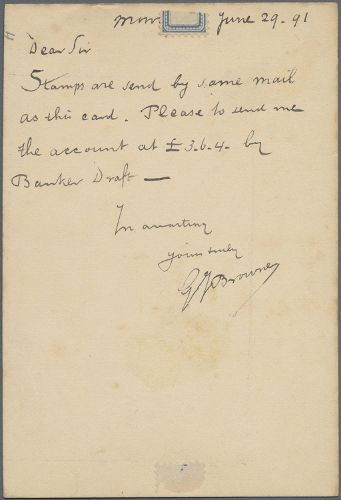 June 29. 91
Dear Sir
Stamps are send by same mail
as this card. Please to send me
the account at £ 3.6.4. by
Banker Draft —
In awaiting
yours truly
G J Browne